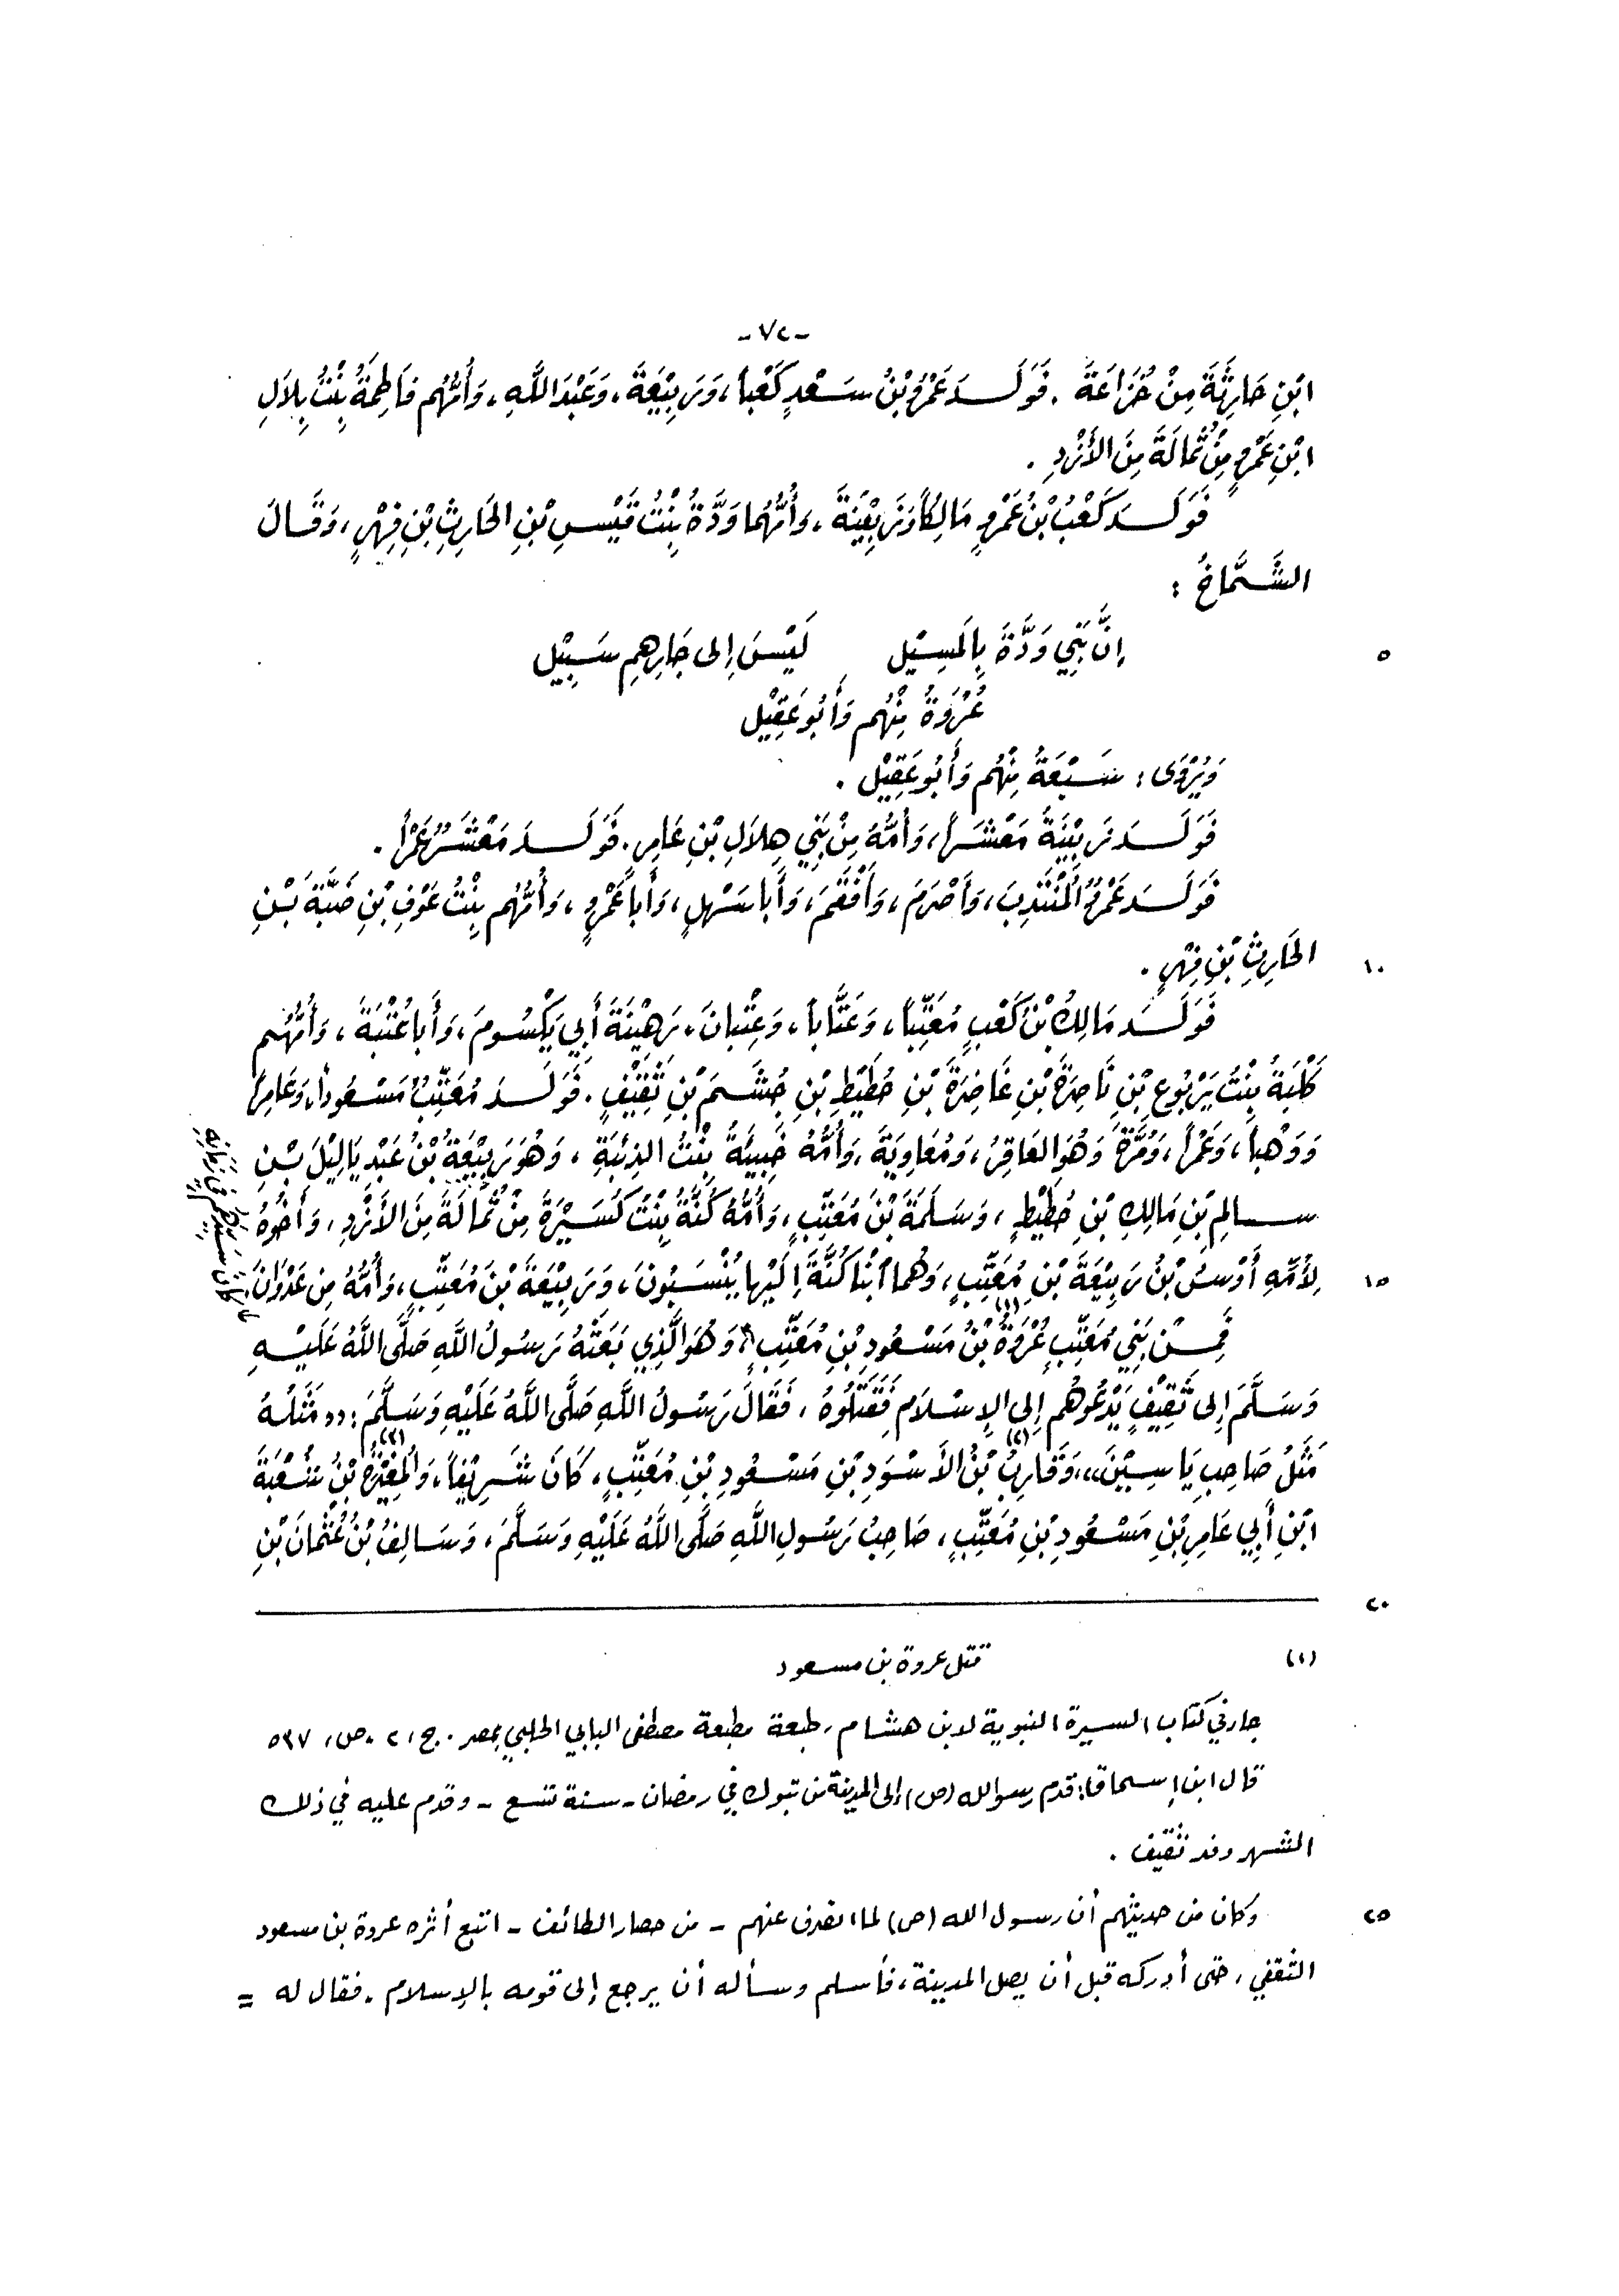 -٧٢-
ابْنِ حَارِثَةَ مِنْ خُزَاعَةَ . فَوَلَـدَ عَمْرُو بْنُ سَعْدٍ كَعْباً، وَرَبِيْعَةَ، وَعَبْدَ اللَّهِ، وَأُمُّهُم فَاطِمَةُ بِنْتُ بِلاَلِ
ابْنِ عَمْرٍو مِنْ ثُمَالَةَ مِنَ الأَزْدِ .
فَوَلَـدَ كَعْبُ بْنُ عَمْرٍو مَالِكاً وَرَبِيْعَةَ، وَأُمُّهُما وَدَّةُ بِنْتُ قَيْسِ بْنِ الحَارِثِ بْنِ فِهْرٍ، وَقَـالَ
الشَّـمَّاخُ :
إِنَّ بَنِي وَدَّةَ بِالمَسِيْل لَيْسَ إِلى جَارِهِم سَبِيْل
٥
عُرْوَةُ مِنْهُم وَأَبُو عَقِيْل
وَيُرْوَى : سَـبْعَةُ مِنْهُم وَأَبُو عَقِيْل .
فَوَلَـدَ رَبِيْعَةُ مَعْشَـراً، وَأُمُّهُ مِنْ بَنِي هِلاَلِ بْنِ عَامِرٍ . فَوَلَـدَ مَعْشَرُ عَمْراً .
فَوَلَـدَ عَمْرٌو المُنْتَدِبَ، وَأَصْرَمَ، وَأَفْقَمَ، وَأَبا سَهْلٍ، وَأَبا عَمْرٍو، وَأُمُّهُم بِنْتُ عَوْفِ بْنِ ضَبَّةَ بْـنِ
الحَارِثِ بْنِ فِهْرٍ .
١٠
فَوَلَـدَ مَالِكُ بْنُ كَعْبٍ مُعَتِّباً، وَعَتَّاباً، وَعِتْبانَ، رَهِيْنَةَ أَبِي يَكْسُومَ، وَأَبا عُتْبَةَ، وَأُمُّهُـم
كَلْبَةُ بِنْتُ يَرْبُوعِ بْنِ نَاصِرَةَ بْنِ غَاضِرَةَ بْنِ حُطَيْطِ بْنِ جُشَـمَ بْنِ ثَقِيْفٍ . فَوَلَـدَ مُعَتِّبُ مَسْعُوداً، وَعَامِراً
وَوَهْباً، وَعَمْراً، وَمُرَّةَ وَهُوَ العَاقِرُ، وَمُعَاوِيَةَ، وَأُمُّهُ خَبِيئَةُ بِنْتُ الذِئْبَةِ، وَهُوَ رَبِيْعَةُ بْنُ عَبْدِ يَالِيْلَ بْـنِ
سـالِمِ بْنِ مَالِكِ بْنِ حُطَيْطٍ، وَسَلَمَةَ بْنَ مُعَتِّبٍ، وَأُمُّهُ كُنَّةُ بِنْتُ كُسَيْرَةَ مِنْ ثُمَالَةَ مِنَ الأَزْدِ، وَأَخُوهُ
لِأُمِّهِ أَوْسُ بْنُ رَبِيْعَةَ بْنِ مُعَتِّبٍ، وَهُما ابْنَا كُنَّةَ إِلَيْها يُنْسَـبُونَ، وَرَبِيْعَةَ بْنَ مُعَتِّبٍ، وَأُمُّهُ مِن عَدْوَانَ
١٥
كَانَ سَيِّدَهُم فِي زَمَانِهِ
فَمِـنْ بَنِي مُعَتِّبٍ عُرْوَةُ بْنُ مَسْعُودِ بْنِ مُعَتِّبٍ (١)، وَهُوَ الَّذِي بَعَثَهُ رَسُولُ اللَّهِ صَلَّى اللَّهُ عَلَيْـهِ
وَسَلَّمَ إِلى ثَقِيْفٍ يَدْعُوهُم إِلى الإِسْلاَمِ فَقَتَلُوهُ، فَقَالَ رَسُولُ اللَّهِ صَلَّى اللَّهُ عَلَيْهِ وَسَلَّمَ : ،، مَثَلُـهُ
مَثَلُ صَاحِبِ يَاسِيْنَ،، وَقَارِبُ (٢) بْنُ الأَسْوَدِ بْنِ مَسْعُودِ بْنِ مُعَتِّبٍ، كَانَ شَـرِيْفاً، وَالمُغِيْرَةُ (٣) بْنُ شُعْبَةَ
ابْنِ أَبِي عَامِرِ بْنِ مَسْعُودِ بْنِ مُعَتِّبٍ، صَاحِبُ رَسُولِ اللَّهِ صَلَّى اللَّهُ عَلَيْهِ وَسَلَّمَ، وَسَالِفُ بْنُ عُثْمانَ بْنِ
٢٠
(١) مقتل عروة بن مسعود
جاء في كتاب السيرة النبوية لابن هشام، طبعة مطبعة مصطفى البابي الحلبي بمصر . ج، ٢، ص، ٥٣٧
قال ابن إسحاق: قدم رسول الله (ص) إلى المدينة من تبوك في رمضان - سنة تسع - وقدم عليه في ذلك
الشهر وفد ثقيف .
وكان من حديثهم أن رسول الله (ص) لما انصرف عنهم - من حصار الطائف - اتبع أثره عروة بن مسعود
٢٥
الثقفي، حتى أدركه قبل أن يصل المدينة، فأسلم وسأله أن يرجع إلى قومه بالإسلام . فقال له =